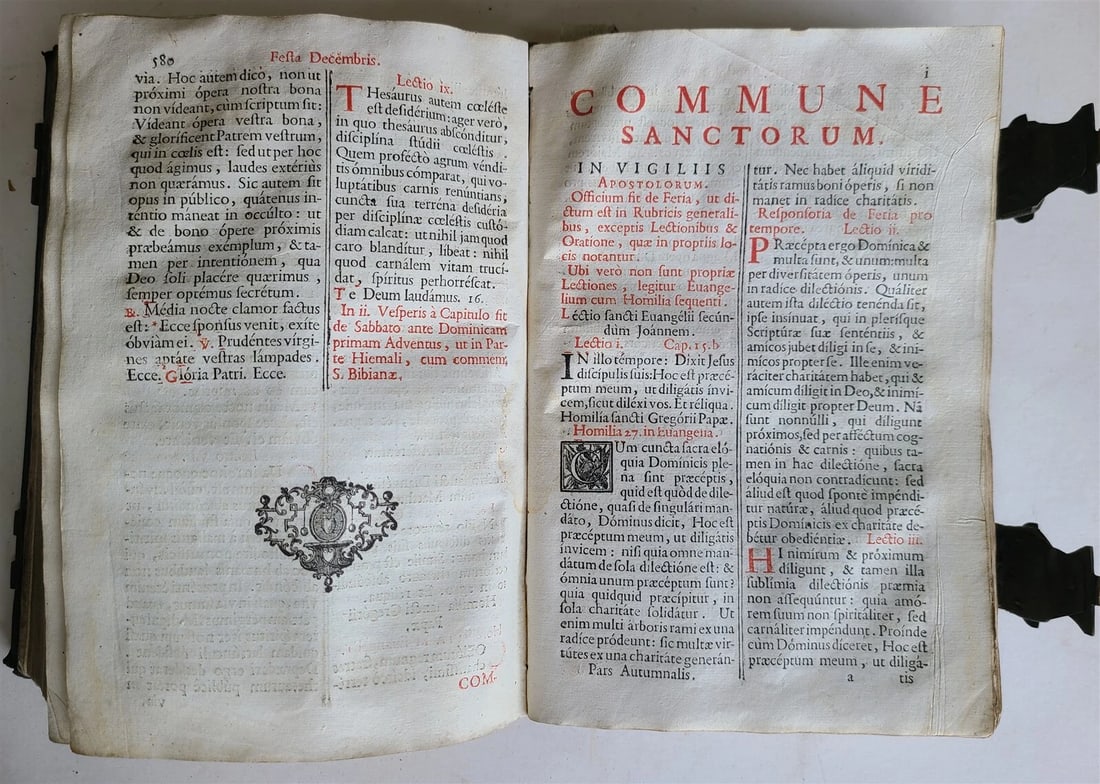 580
Festa Decembris.
via. Hoc autem dico, non ut
próximi ópera nostra bona
non vídeant, cùm scriptum sit:
Vídeant ópera vestra bona,
& gloríficent Patrem vestrum,
qui in cœlis est: sed ut per hoc
quod ágimus, laudes extériùs
non quærámus. Sic autem sit
opus in público, quátenus in-
téntio máneat in occúlto: ut
& de bono ópere próximis
præbeámus exémplum, & ta-
men per intentiónem, qua
Deo soli placére quærimus,
semper optémus secrétum.
℟. Média nocte clamor factus
est: * Ecce sponsus venit, exíte
óbviam ei. ℣. Prudéntes vírgi-
nes aptáte vestras lámpades.
Ecce. Glória Patri. Ecce.
Lectio ix.
THesáurus autem cœléste
est desidérium: ager verò,
in quo thesáurus abscónditur,
disciplína stúdii cœléstis.
Quem profectò agrum véndi-
tis ómnibus cómparat, qui vo-
luptátibus carnis renúntians,
cuncta sua terréna desidéria
per disciplínæ cœléstis custó-
diam calcat: ut nihil jam quod
caro blandítur, libeat: nihil
quod carnálem vitam trucí-
dat, spíritus perhorréscat.
Te Deum laudámus. 16.
In ii. Vesperis à Capitulo fit
de Sabbato ante Dominicam
primam Adventus, ut in Par-
te Hiemali, cum commem.
S. Bibianæ.
COM-
i
COMMUNE
SANCTORUM.
IN VIGILIIS
APOSTOLORUM.
Officium fit de Feria, ut di-
ctum est in Rubricis generali-
bus, exceptis Lectionibus &
Oratione, quæ in propriis lo-
cis notantur.
Ubi verò non sunt propriæ
Lectiones, legitur Euange-
lium cum Homilia sequenti.
Léctio sancti Euangélii secún-
dùm Joánnem.
Lectio i. Cap. 15. b
IN illo témpore: Dixit Jesus
discípulis suis: Hoc est præcé-
ptum meum, ut diligátis ínvi-
cem, sicut diléxi vos. Et réliqua.
Homilía sancti Gregórii Papæ.
Homilia 27. in Euangelia.
CUm cuncta sacra eló-
quia Domínicis ple-
na sint præcéptis,
quid est quòd de dile-
ctióne, quasi de singulári man-
dáto, Dóminus dicit, Hoc est
præcéptum meum, ut diligátis
ínvicem: nisi quia omne man-
dátum de sola dilectióne est: &
ómnia unum præcéptum sunt?
quia quidquid præcípitur, in
sola charitáte solidátur. Ut
enim multi árboris rami ex una
radíce pródeunt: sic multæ vir-
tútes ex una charitáte generán-
Pars Autumnalis.
tur. Nec habet áliquid viridi-
tátis ramus boni óperis, si non
manet in radíce charitátis.
Responsoria de Feria pro
tempore. Lectio ii.
PRæcépta ergo Domínica &
multa sunt, & unum: multa
per diversitátem óperis, unum
in radíce dilectiónis. Quáliter
autem ista diléctio tenénda sit,
ipse insínuat, qui in plerísque
Scriptúræ suæ senténtiis, &
amícos jubet díligi in se, & ini-
mícos propter se. Ille enim ve-
ráciter charitátem habet, qui &
amícum díligit in Deo, & inimí-
cum díligit propter Deum. Nā
sunt nonnúlli, qui díligunt
próximos, sed per afféctum cog-
natiónis & carnis: quibus ta-
men in hac dilectióne, sacra
elóquia non contradícunt: sed
áliud est quod sponte impéndi-
tur natúræ, áliud quod præcé-
ptis Domínicis ex charitáte de-
bétur obediéntiæ. Lectio iii.
HI nímirum & próximum
díligunt, & tamen illa
sublímia dilectiónis præmia
non assequúntur: quia amó-
rem suum non spiritáliter, sed
carnáliter impéndunt. Proínde
cùm Dóminus díceret, Hoc est
præcéptum meum, ut diligá-
a tis